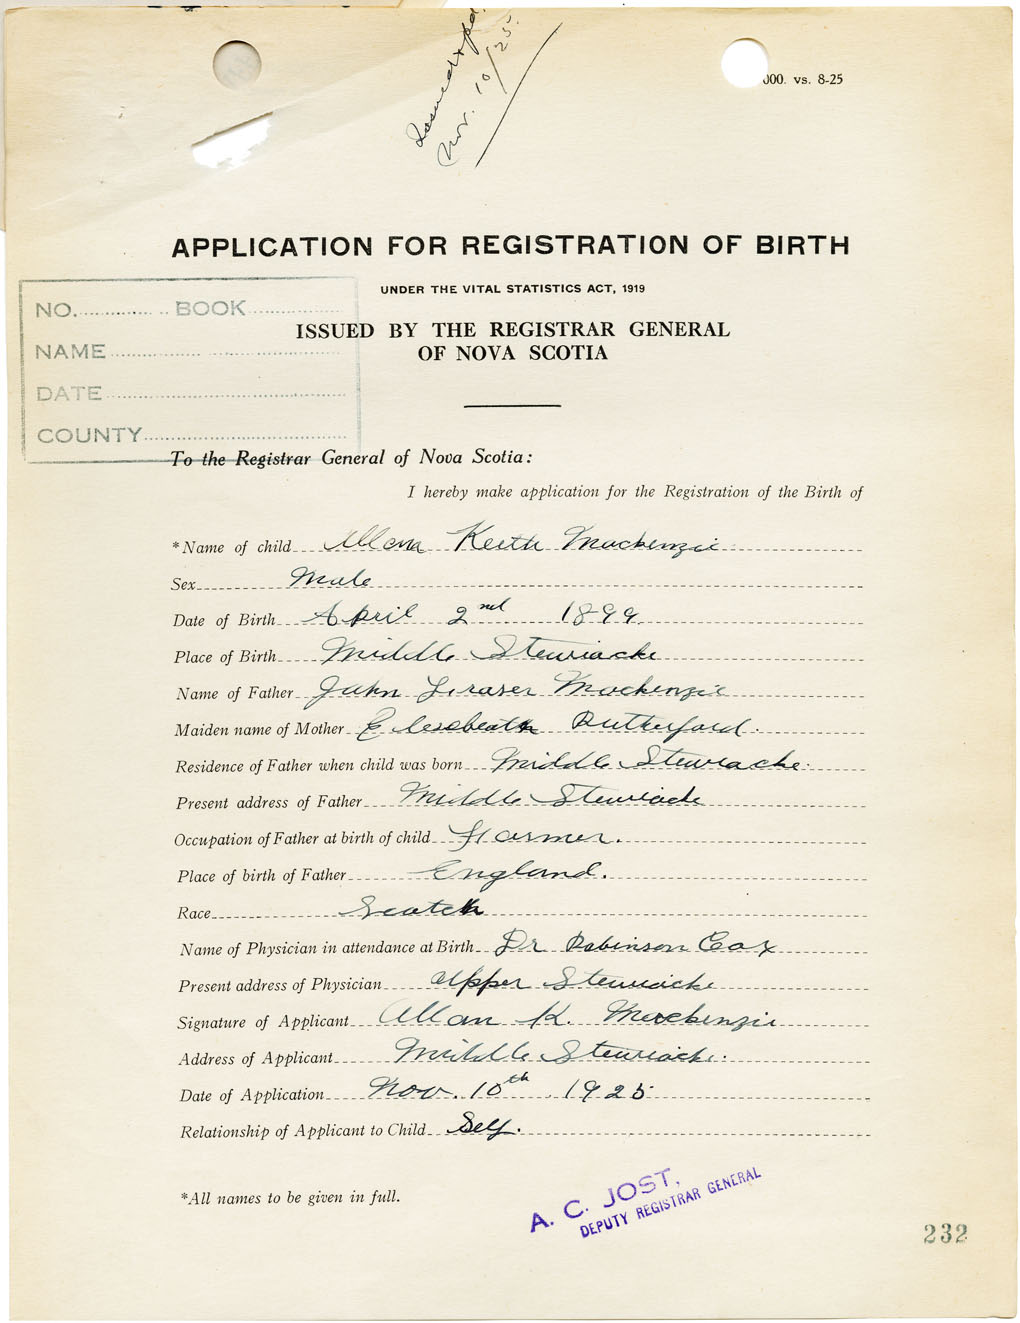 Issued & pd.
Nov. 10/25.
000. vs. 8-25
APPLICATION FOR REGISTRATION OF BIRTH
UNDER THE VITAL STATISTICS ACT, 1919
ISSUED BY THE REGISTRAR GENERAL
OF NOVA SCOTIA
NO. BOOK
NAME
DATE
COUNTY
To the Registrar General of Nova Scotia:
I hereby make application for the Registration of the Birth of
*Name of child Allan Keith Mackenzie
Sex Male
Date of Birth April 2nd 1899
Place of Birth Middle Stewiacke
Name of Father John Fraser Mackenzie
Maiden name of Mother Elesebeath Rutherford.
Residence of Father when child was born Middle Stewiacke.
Present address of Father Middle Stewiacke
Occupation of Father at birth of child Farmer.
Place of birth of Father England.
Race Scotch
Name of Physician in attendance at Birth Dr Robinson Cox
Present address of Physician Upper Stewiacke
Signature of Applicant Allan K. Mackenzie
Address of Applicant Middle Stewiacke.
Date of Application Nov. 10th 1925
Relationship of Applicant to Child Self.
*All names to be given in full.
A. C. JOST,
DEPUTY REGISTRAR GENERAL
232